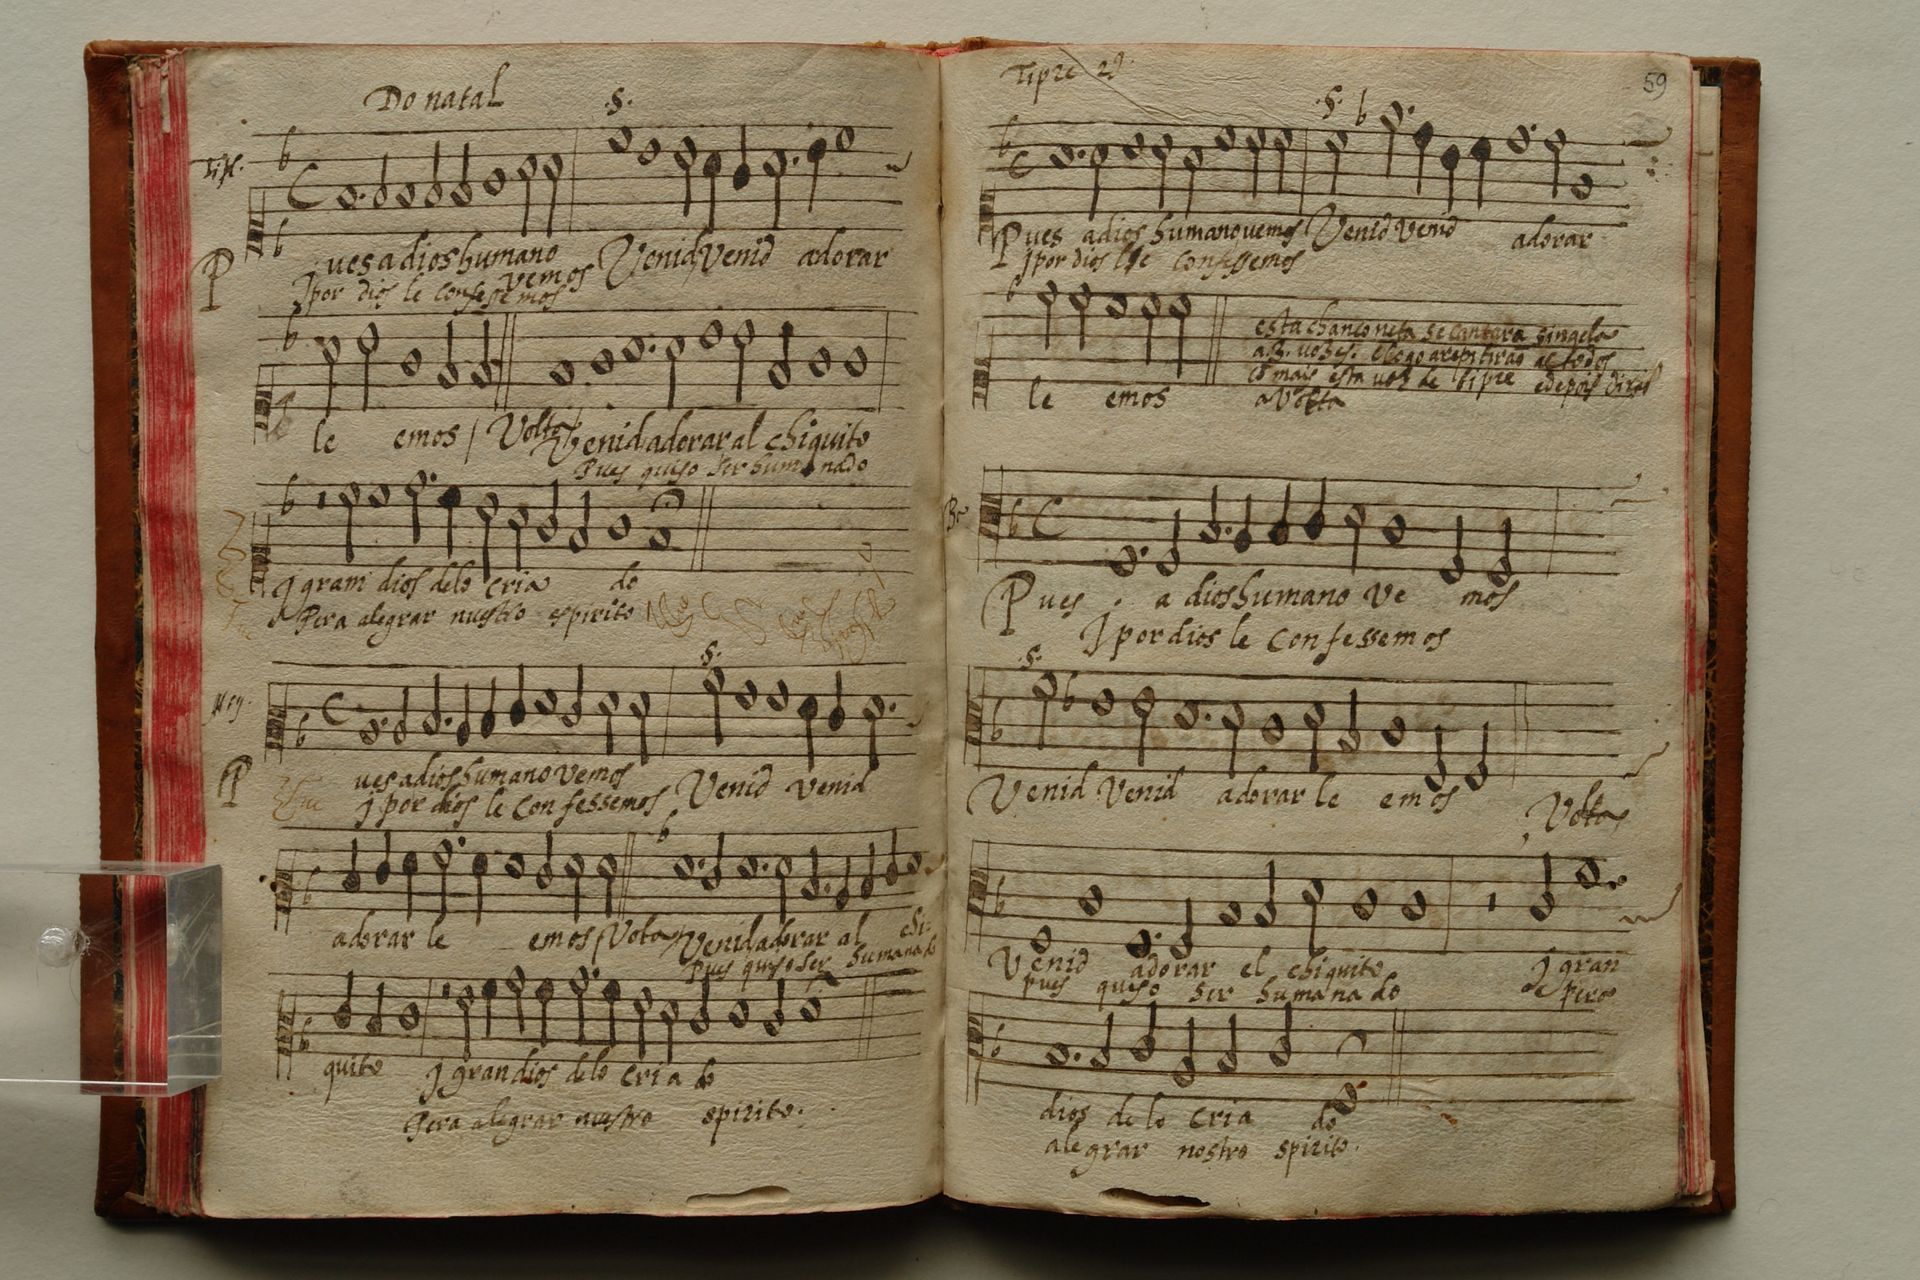 Do natal
Tiple
ues a dios humano vemos Venid Venid adorar
P
j por dios le confessemos
le emos Volta Venid adorar al chiquito
Pues quiso ser humanado
j gram dios delo cria do
Pera alegrar nuestro espirito
ues a dios humano vemos Venid venid
P
j por dios le confessemos
adorar le emos Volta Venid adorar al chi-
pues quiso ser humanado
quito j gran dios delo cria do
Pera alegrar nuestro spirito.
Tiple 2º
59
Pues a dios humano vemos Venid venid adorar
j por dios le confessemos
le emos
esta chanconeta se cantara singela
a 3. vozes. e logo a repitirão
co mais esta voz de tipre e depois dirão
a Volta
Pues a dios humano Ve mos
j por dios le confessemos
Venid Venid adorar le emos Volta
Venid adorar el chiquito j gran
pues quiso ser humana do pera
dios de lo cria do
alegrar nostro spirito.